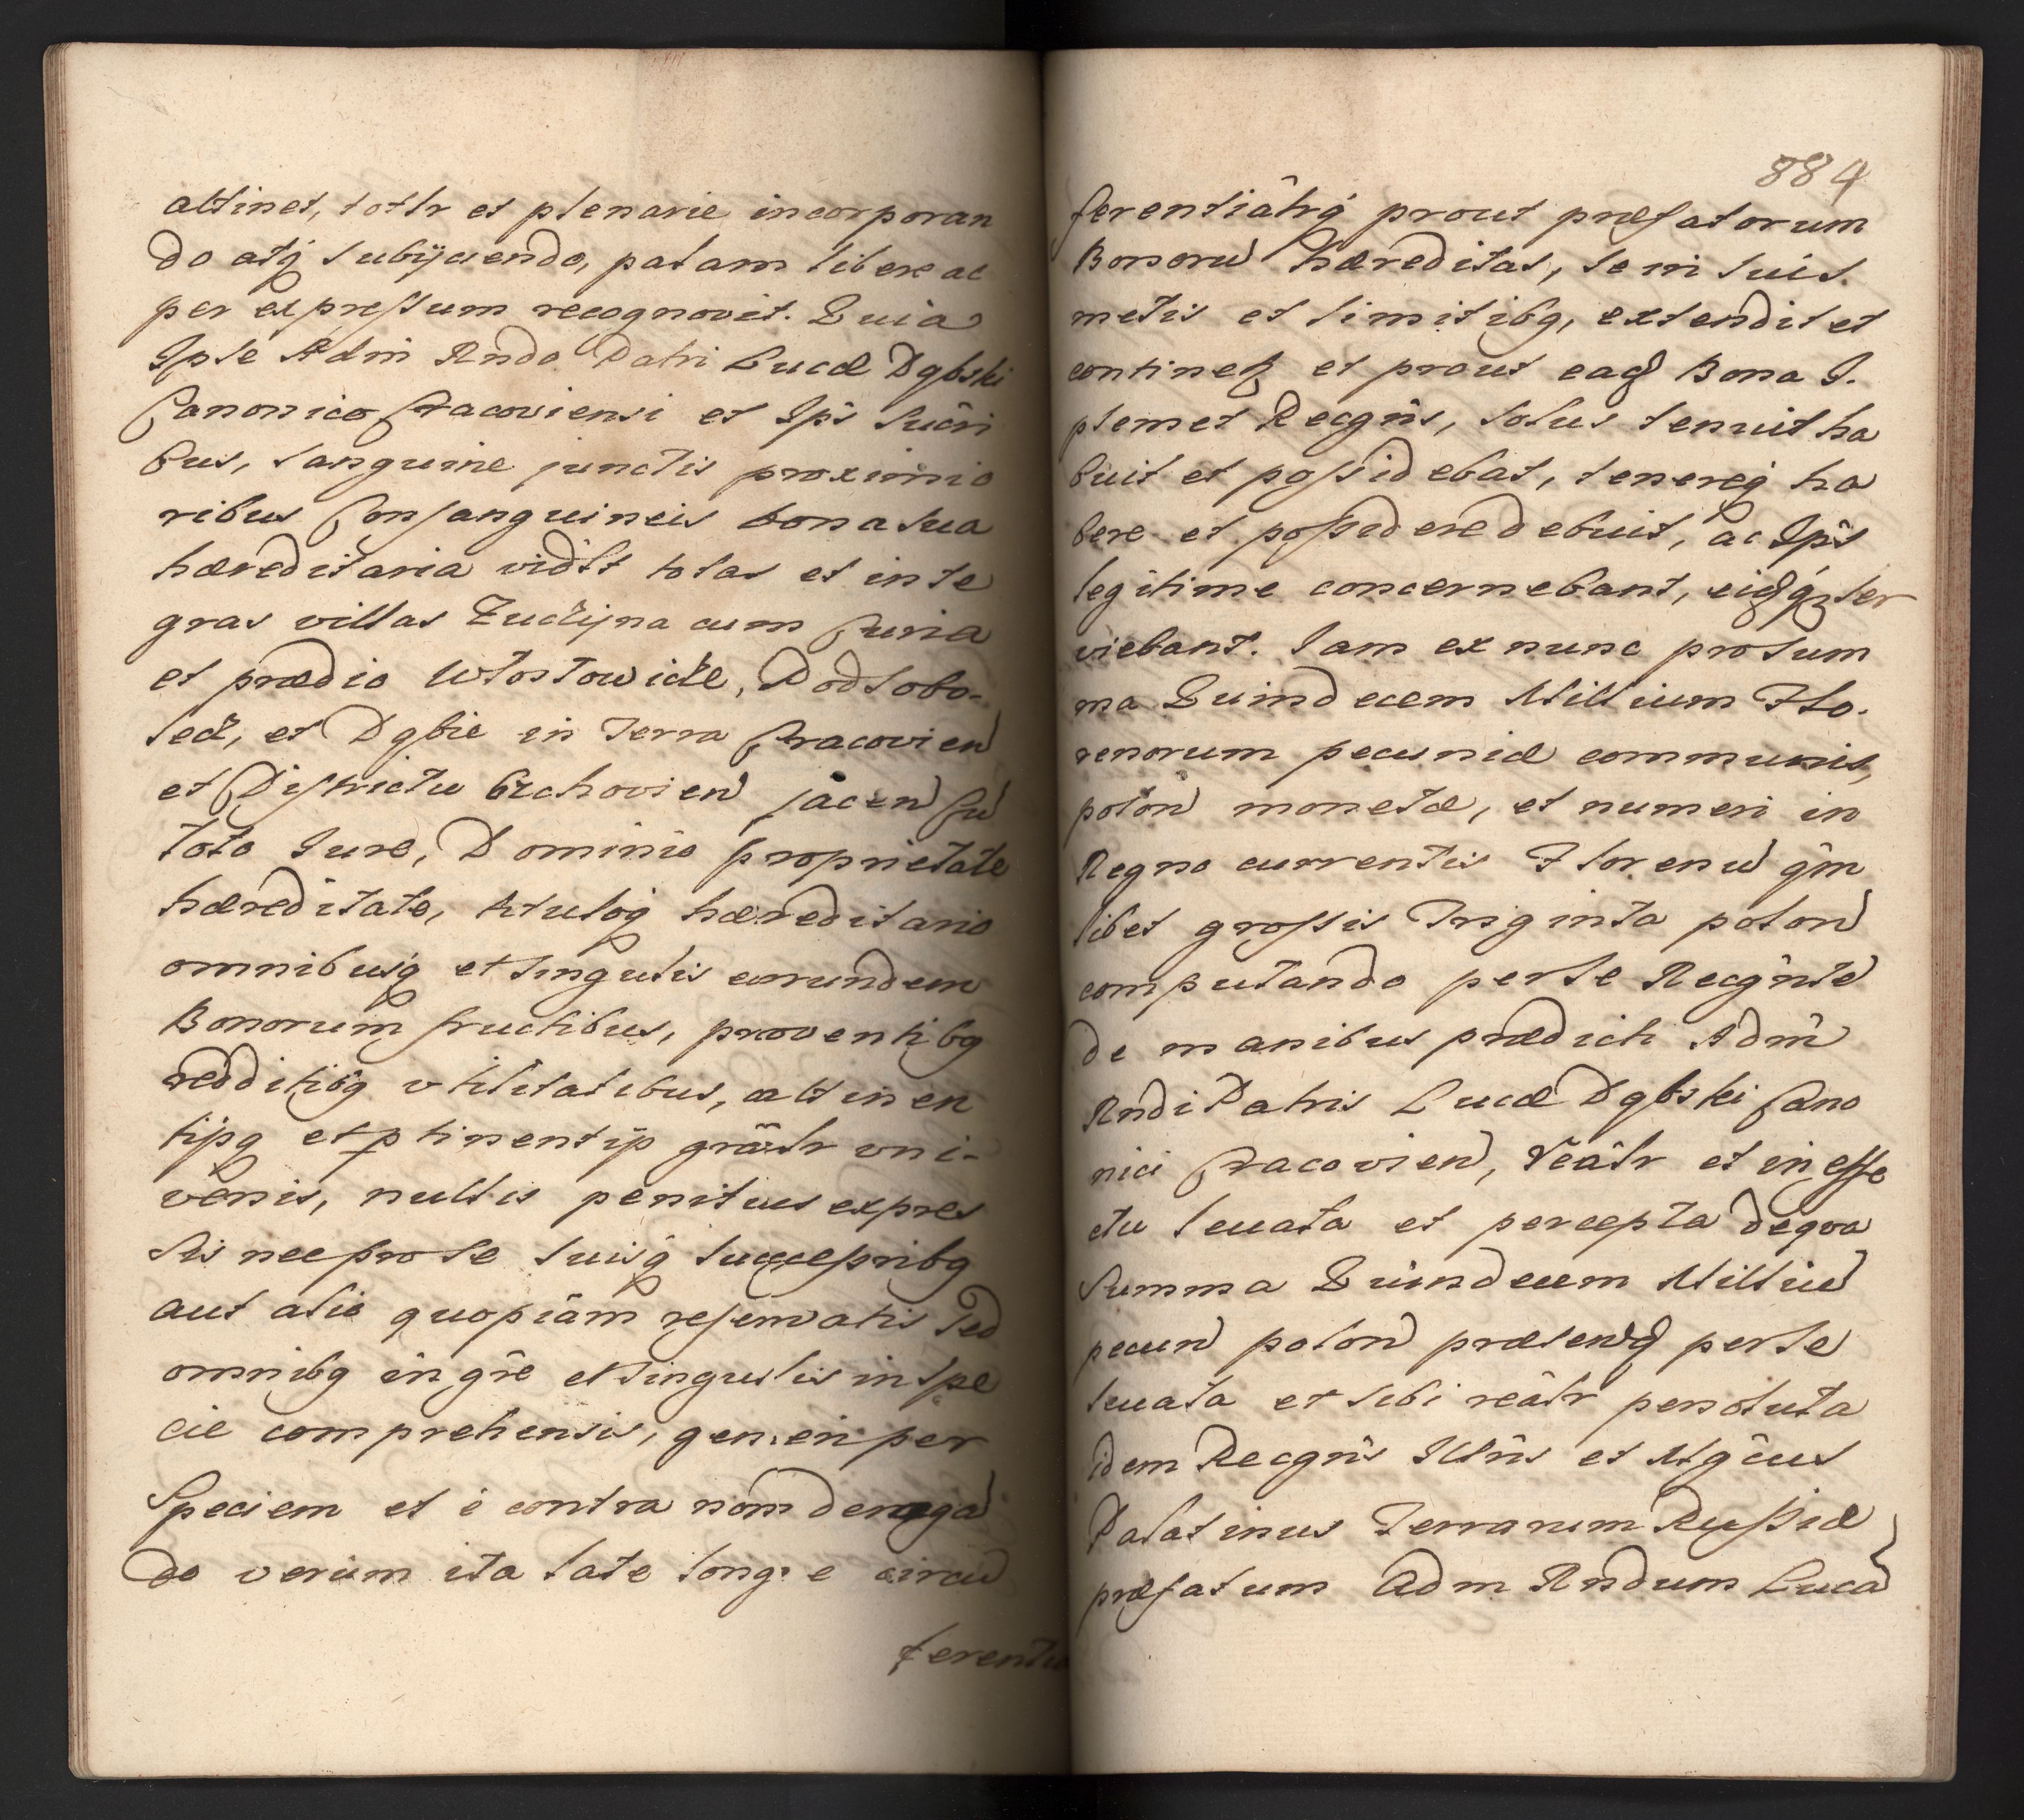 attinet, totlr et plenarie incorporan
do atq subijciendo, palam libere ac
per expressum recognovit. Quia
Ipse Adm Rndo Patri Lucæ Dąbski
Canonico Cracoviensi et Ips Sucri
bus, sanguine junctis proximio
ribus Consanguineis bona sua
hæreditaria vidlt totas et inte
gras villas cum Curia
et prædio Wtostowicze, Podlobo-
lecz, et Dąbie in Terra Cracovien
et Districtu Czchovien jacen Cu
toto Iure, Dominio proprietate
hæreditate, tituloq hæreditario
omnibusq et singulis eorundem
Bonorum fructibus, proventibq
redditibq vtilitatibus, attinen
tijsq et ptinentijs grãtr vni-
versis, nullis penitus expres
sis nec pro se suisq successoribq
aut alio quopiam reservatis sed
omnibq in gñe et singulis in spe
cie comprehensis, genen per
Speciem et è contra nom denega
do verum ita late longe e circu
ferentia
884
ferentiâlrq prout præfatorum
Bonoru hæreditas, se in suis
metis et limitibq, extendit et
continet et prout ead Bona I.
psemet Recgñs, solus tenuit ha
buit et possidebat, tenereq ha
bere et possidere debuit, ac Ips
legitime concernebant, eidq ser
viebant. Iam ex nunc pro sum
ma Quindecem Millium Flo.
renorum pecuniæ communis,
polon monetæ, et numeri in
Regno currentis Florenu qm
libet grossis Triginta polon
computando per se Recgnte
de manibus prædicti Adm
Rndi Patris Lucæ Dąbski Cano
nici Cracovien, reâlr et in effe
ctu levata et percepta de qva
Summa Quindecem Milliu
pecun polon præsend per se
levata et sibi reâlr persoluta
idem Recgñs Illñs et Mgcus
Palatinus Terrarum Russiæ
præfatum Adm Rndum Luca